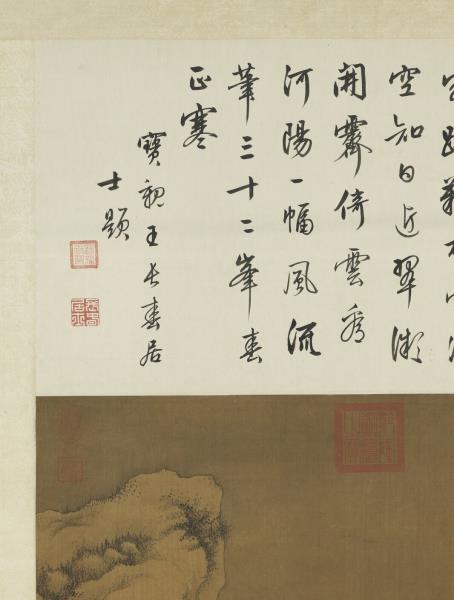 空知日近翠微
開霽倚雲看
河陽一幅風流
筆三十二峯春
正寒
寶親王長春居
士題